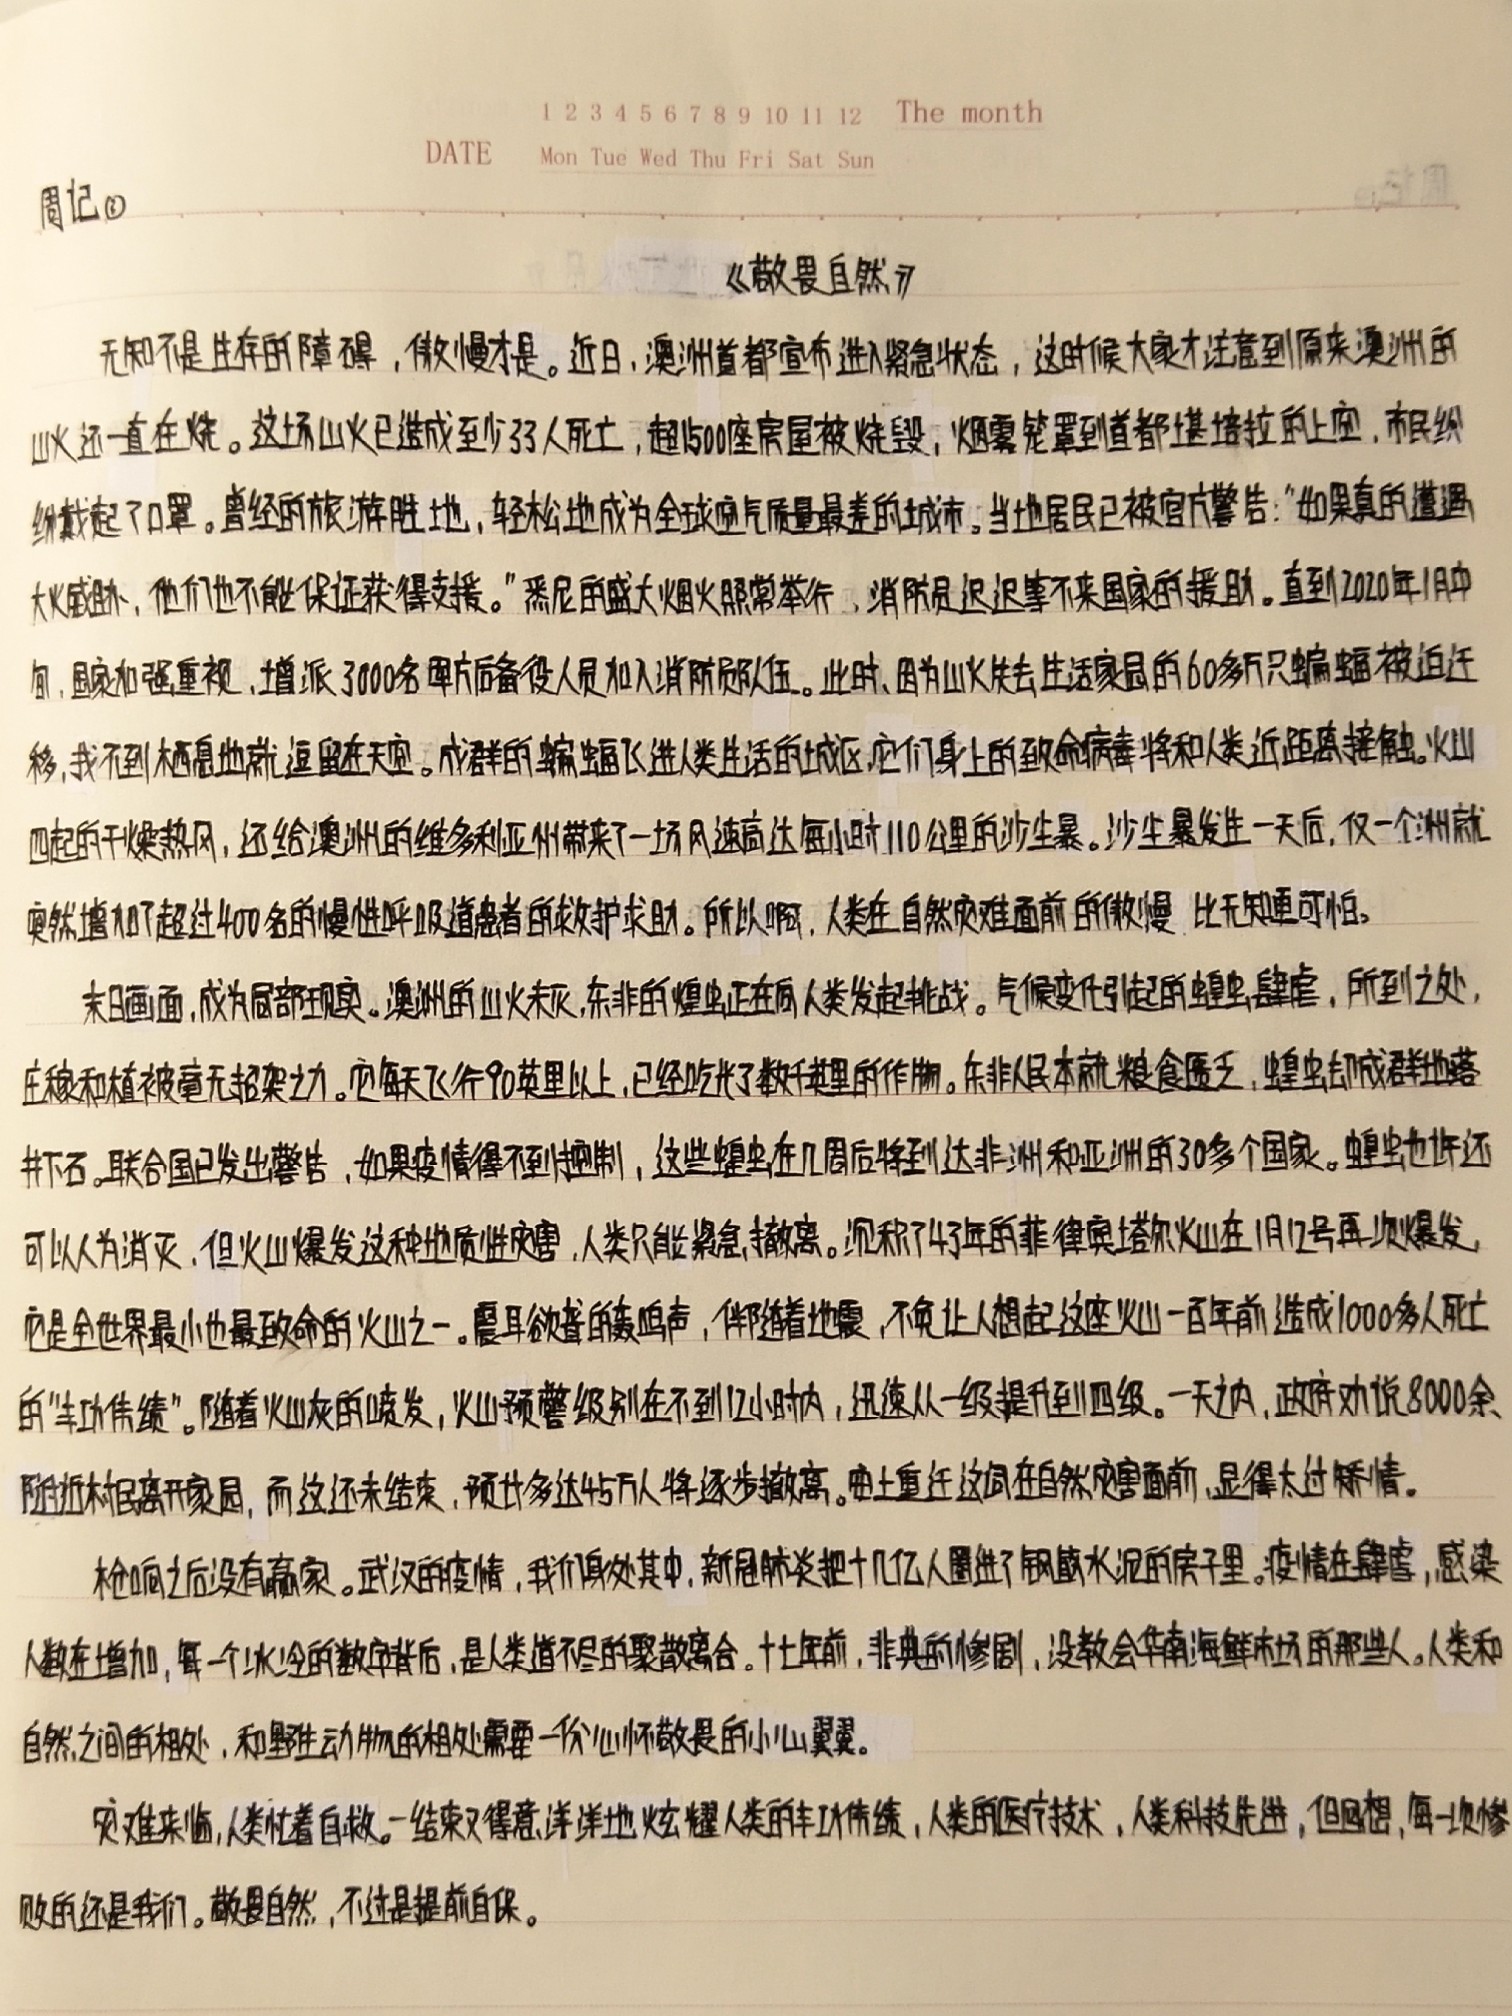 1 2 3 4 5 6 7 8 9 10 11 12 The month
DATE Mon Tue Wed Thu Fri Sat Sun
周记
《敬畏自然》
无知不是生存的障碍，傲慢才是。近日，澳洲首都宣布进入紧急状态，这时候大家才注意到原来澳洲的
山火还一直在烧。这场山火已造成至少33人死亡，超1500座房屋被烧毁，烟雾笼罩到首都堪培拉的上空，市民纷
纷戴起了口罩。曾经的旅游胜地，轻松地成为全球空气质量最差的城市。当地居民已被官方警告："如果真的遭遇
大火威胁，他们也不能保证获得支援。"悉尼的盛大烟火照常举行，消防员迟迟等不来国家的援助。直到2020年1月中
旬，国家加强重视，增派3000名军方后备役人员加入消防员队伍。此时，因为山火失去生活家园的60多万只蝙蝠被迫迁
移，找不到栖息地就逗留在天空。成群的蝙蝠飞进人类生活的城区，它们身上的致命病毒将和人类近距离接触。火山
四起的干燥热风，还给澳洲的维多利亚州带来了一场风速高达每小时110公里的沙尘暴。沙尘暴发生一天后，仅一个洲就
突然增加了超过400名的慢性呼吸道患者的救护求助。所以啊，人类在自然灾难面前的傲慢 比无知更可怕。
末日画面，成为局部现实。澳洲的山火未灭，东非的蝗虫正在向人类发起挑战。气候变化引起的蝗虫肆虐，所到之处，
庄稼和植被毫无招架之力。它每天飞行90英里以上，已经吃光了数千英里的作物。东非人民本就粮食匮乏，蝗虫却成群地落
井下石。联合国已发出警告，如果疫情得不到控制，这些蝗虫在几周后将到达非洲和亚洲的30多个国家。蝗虫也许还
可以人为消灭，但火山爆发这种地质性灾害，人类只能紧急撤离。沉积了43年的菲律宾塔尔火山在1月12号再次爆发，
它是全世界最小也最致命的火山之一。震耳欲聋的轰鸣声，伴随着地震，不免让人想起这座火山一百年前造成1000多人死亡
的"丰功伟绩"。随着火山灰的喷发，火山预警级别在不到12小时内，迅速从一级提升到四级。一天之内，政府劝说8000余
附近村民离开家园，而这还未结束，预计多达45万人将逐步撤离。安土重迁这词在自然灾害面前，显得太过矫情。
枪响之后没有赢家。武汉的疫情，我们身处其中，新冠肺炎把十几亿人圈进了钢筋水泥的房子里。疫情在肆虐，感染
人数在增加，每一个冰冷的数字背后，是人类道不尽的聚散离合。十七年前，非典的惨剧，没教会华南海鲜市场的那些人。人类和
自然之间的相处，和野生动物的相处需要一份心怀敬畏的小心翼翼。
灾难来临，人类忙着自救。一结束又得意洋洋地炫耀人类的丰功伟绩，人类的医疗技术，人类科技先进，但回想，每一次惨
败的还是我们。敬畏自然，不过是提前自保。